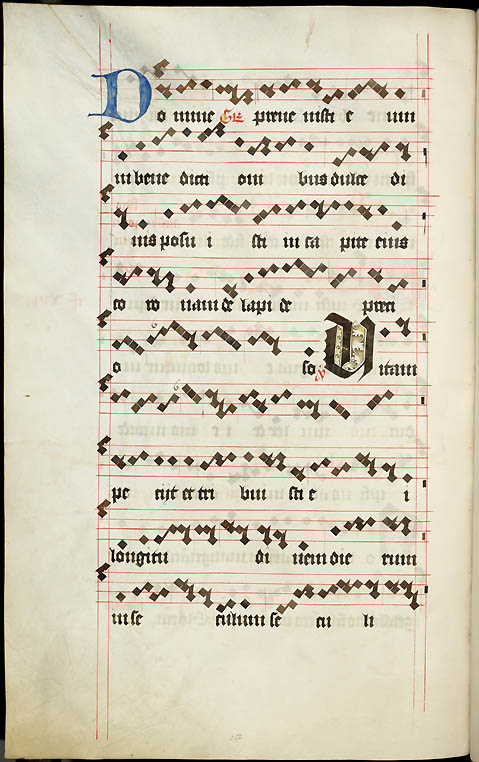 Do mine Gr prene nisti e um
in bene dicti oni bus dulce di
nis posu i sti in ca pite eius
co ro nam de lapi de preci
o so V itam
pe cijt et tri bui sti e i
longitu di nem die rum
in se culum se cu li